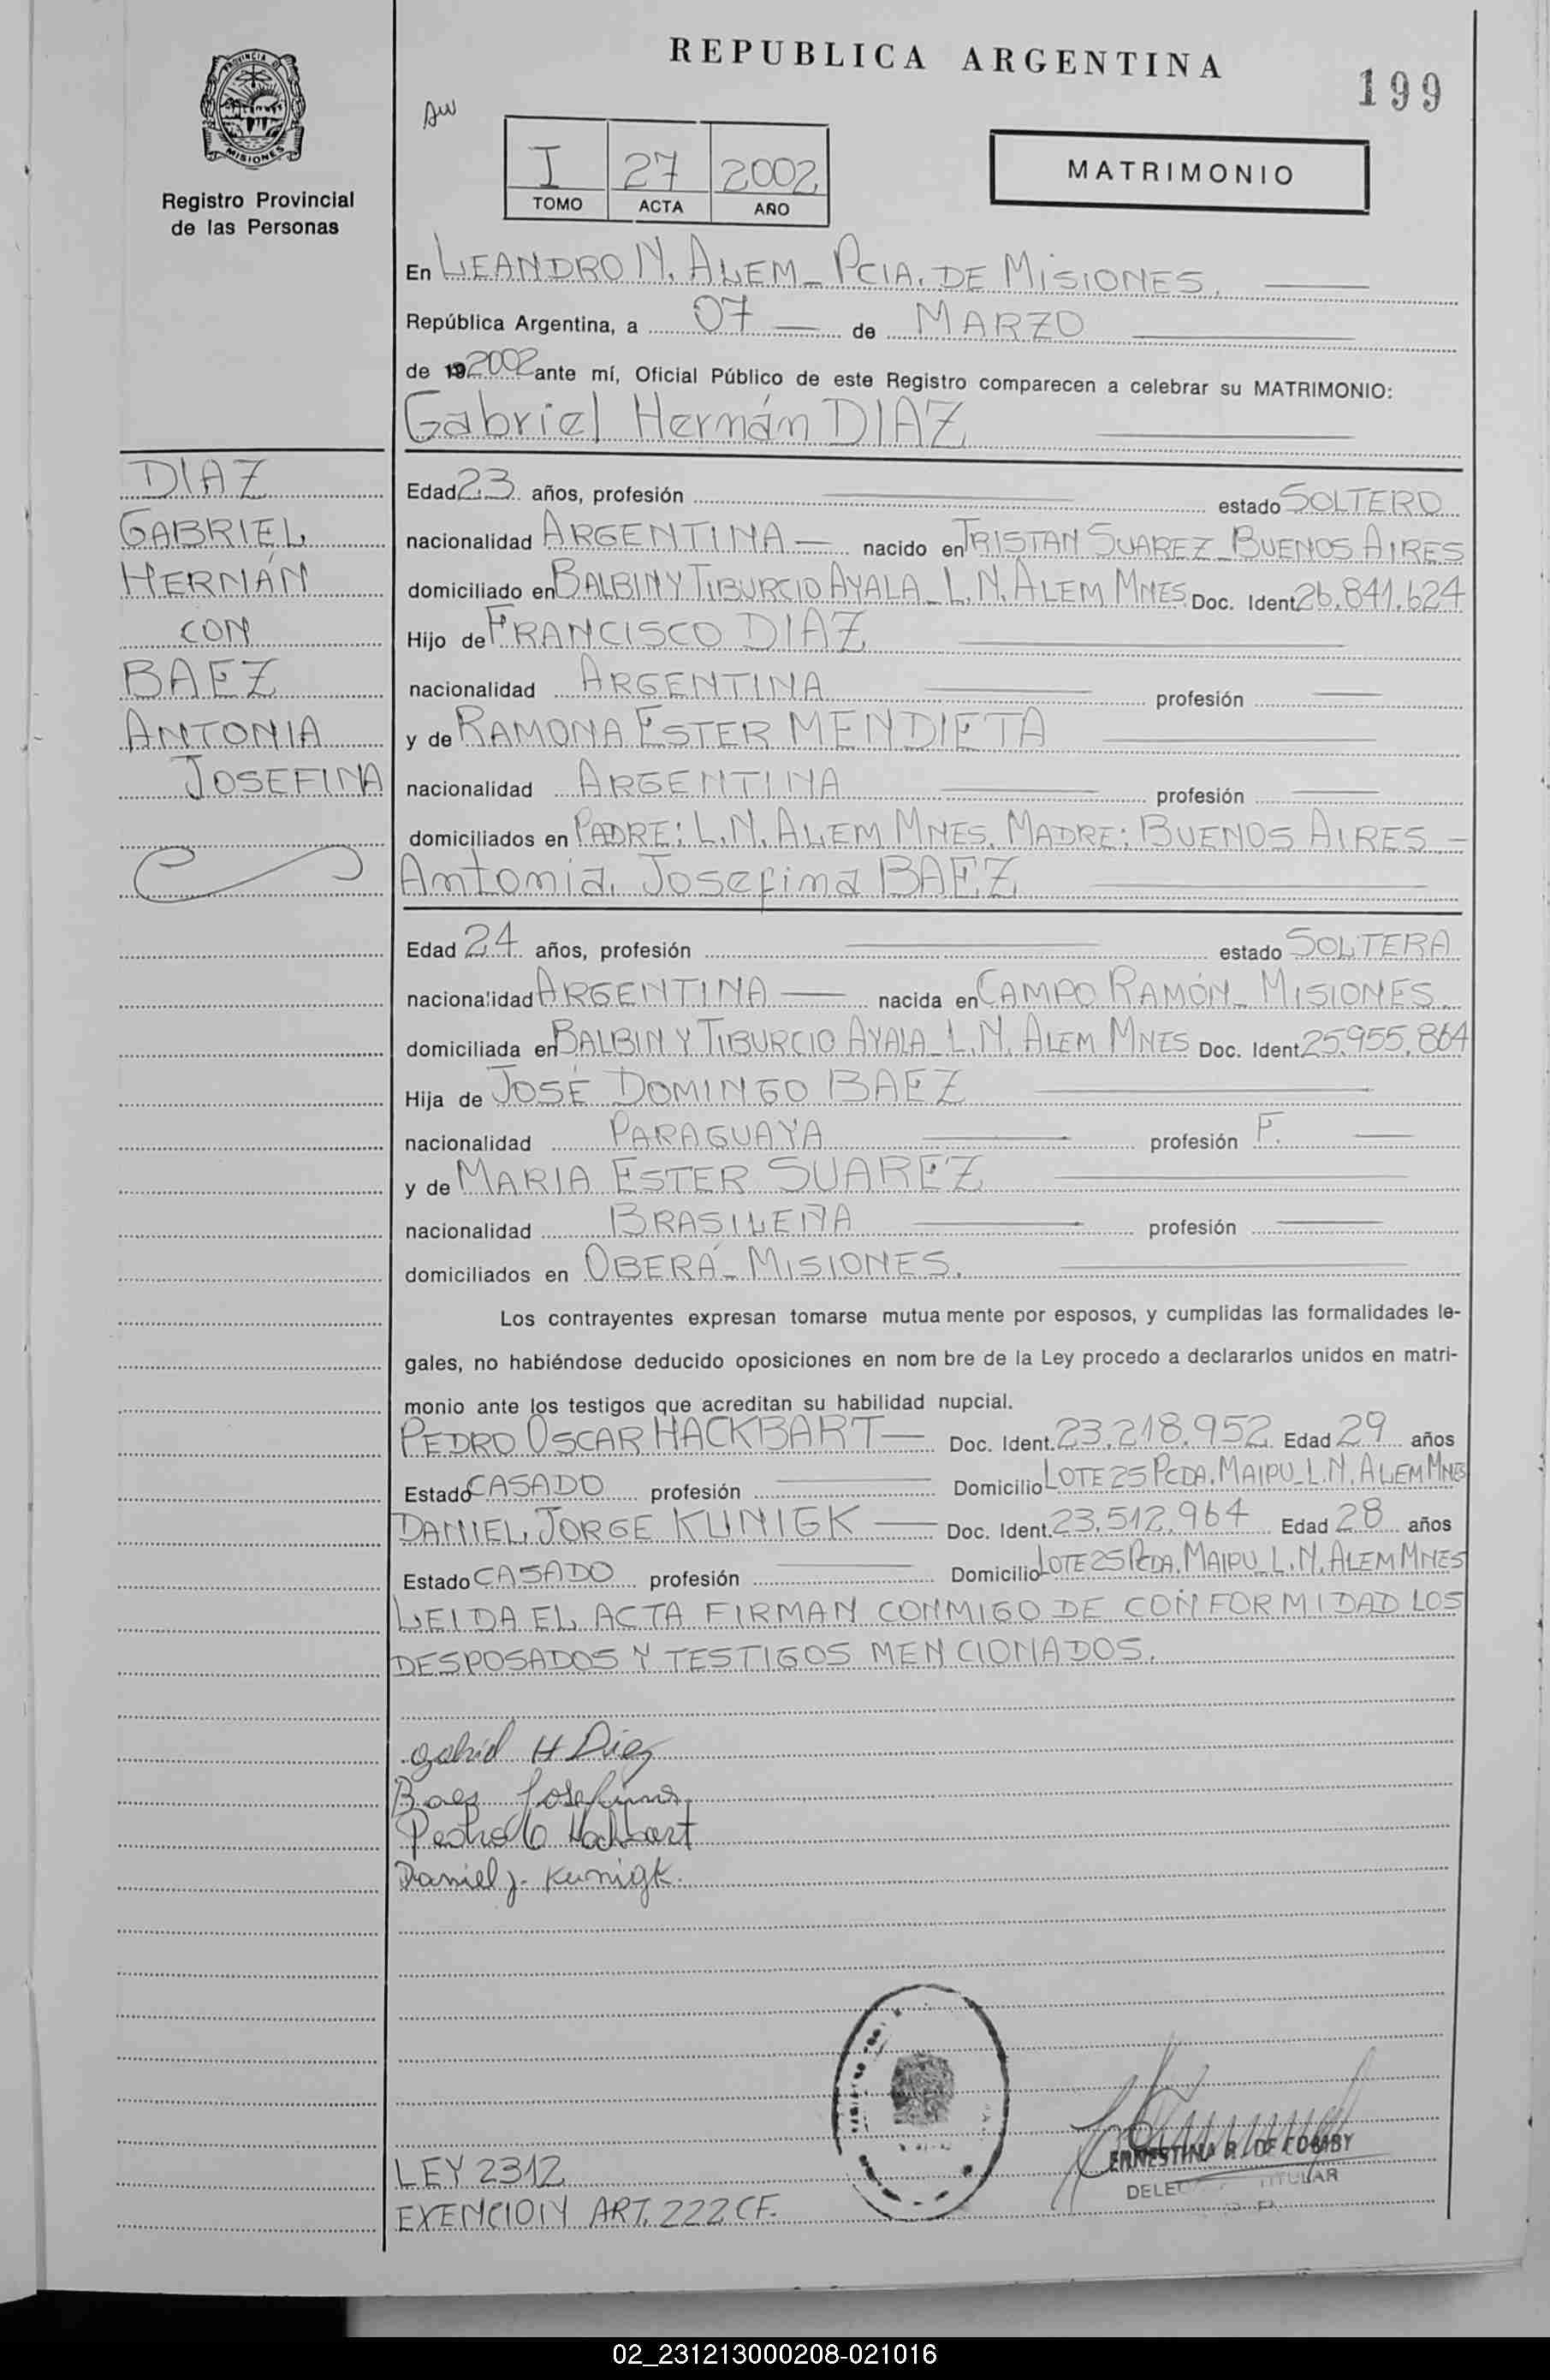 REPUBLICA ARGENTINA
199
PROVINCIA DE
MISIONES
Registro Provincial
de las Personas
I 27 2002
TOMO ACTA AÑO
MATRIMONIO
En LEANDRO N. ALEM_ PCIA. DE MISIONES.
República Argentina, a 07 de MARZO
de 192002 ante mí, Oficial Público de este Registro comparecen a celebrar su MATRIMONIO:
Gabriel Hernán DIAZ
DIAZ
GABRIEL
HERNÁN
CON
BAEZ
ANTONIA
JOSEFINA
Edad 23 años, profesión estado SOLTERO
nacionalidad ARGENTINA nacido en TRISTAN SUAREZ_BUENOS AIRES
domiciliado en BALBIN Y TIBURCIO AYALA_L.N. ALEM MNES Doc. Ident 26.841.624
Hijo de FRANCISCO DIAZ
nacionalidad ARGENTINA profesión
y de RAMONA ESTER MENDIETA
nacionalidad ARGENTINA profesión
domiciliados en PADRE: L.N. ALEM MNES. MADRE: BUENOS AIRES
Antonia Josefina BAEZ
Edad 24 años, profesión estado SOLTERA
nacionalidad ARGENTINA nacida en CAMPO RAMÓN_ MISIONES
domiciliada en BALBIN Y TIBURCIO AYALA_L.N. ALEM MNES Doc. Ident 25.955.864
Hija de JOSÉ DOMINGO BAEZ
nacionalidad PARAGUAYA profesión F.
y de MARIA ESTER SUAREZ
nacionalidad BRASILEÑA profesión
domiciliados en OBERÁ_ MISIONES.
Los contrayentes expresan tomarse mutua mente por esposos, y cumplidas las formalidades le-
gales, no habiéndose deducido oposiciones en nom bre de la Ley procedo a declararlos unidos en matri-
monio ante los testigos que acreditan su habilidad nupcial.
PEDRO OSCAR HACKBART Doc. Ident. 23.218.952 Edad 29 años
Estado CASADO profesión Domicilio LOTE 25 PCDA. MAIPU_L.N. ALEM MNES
DANIEL JORGE KUNIGK Doc. Ident. 23.512.964 Edad 28 años
Estado CASADO profesión Domicilio LOTE 25 PCDA. MAIPU_L.N. ALEM MNES
LEIDA EL ACTA FIRMAN CONMIGO DE CONFORMIDAD LOS
DESPOSADOS Y TESTIGOS MENCIONADOS.
Gabriel H Diaz
Baez Josefina
Pedro O Hackbart
Daniel J. Kunigk.
ERNESTINA R. DE
TITULAR
LEY 2312
EXENCION ART. 222 CF.
02_231213000208-021016